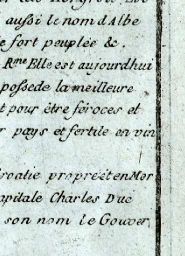 aussi le nom d'Albe
e fort peuplée &c.
Rme Elle est aujourdhui
possede la meilleure
t pour être féroces et
r pays et fertile en vin
roatie propre et en Mor
apitale Charles Duc
son nom le Gouver